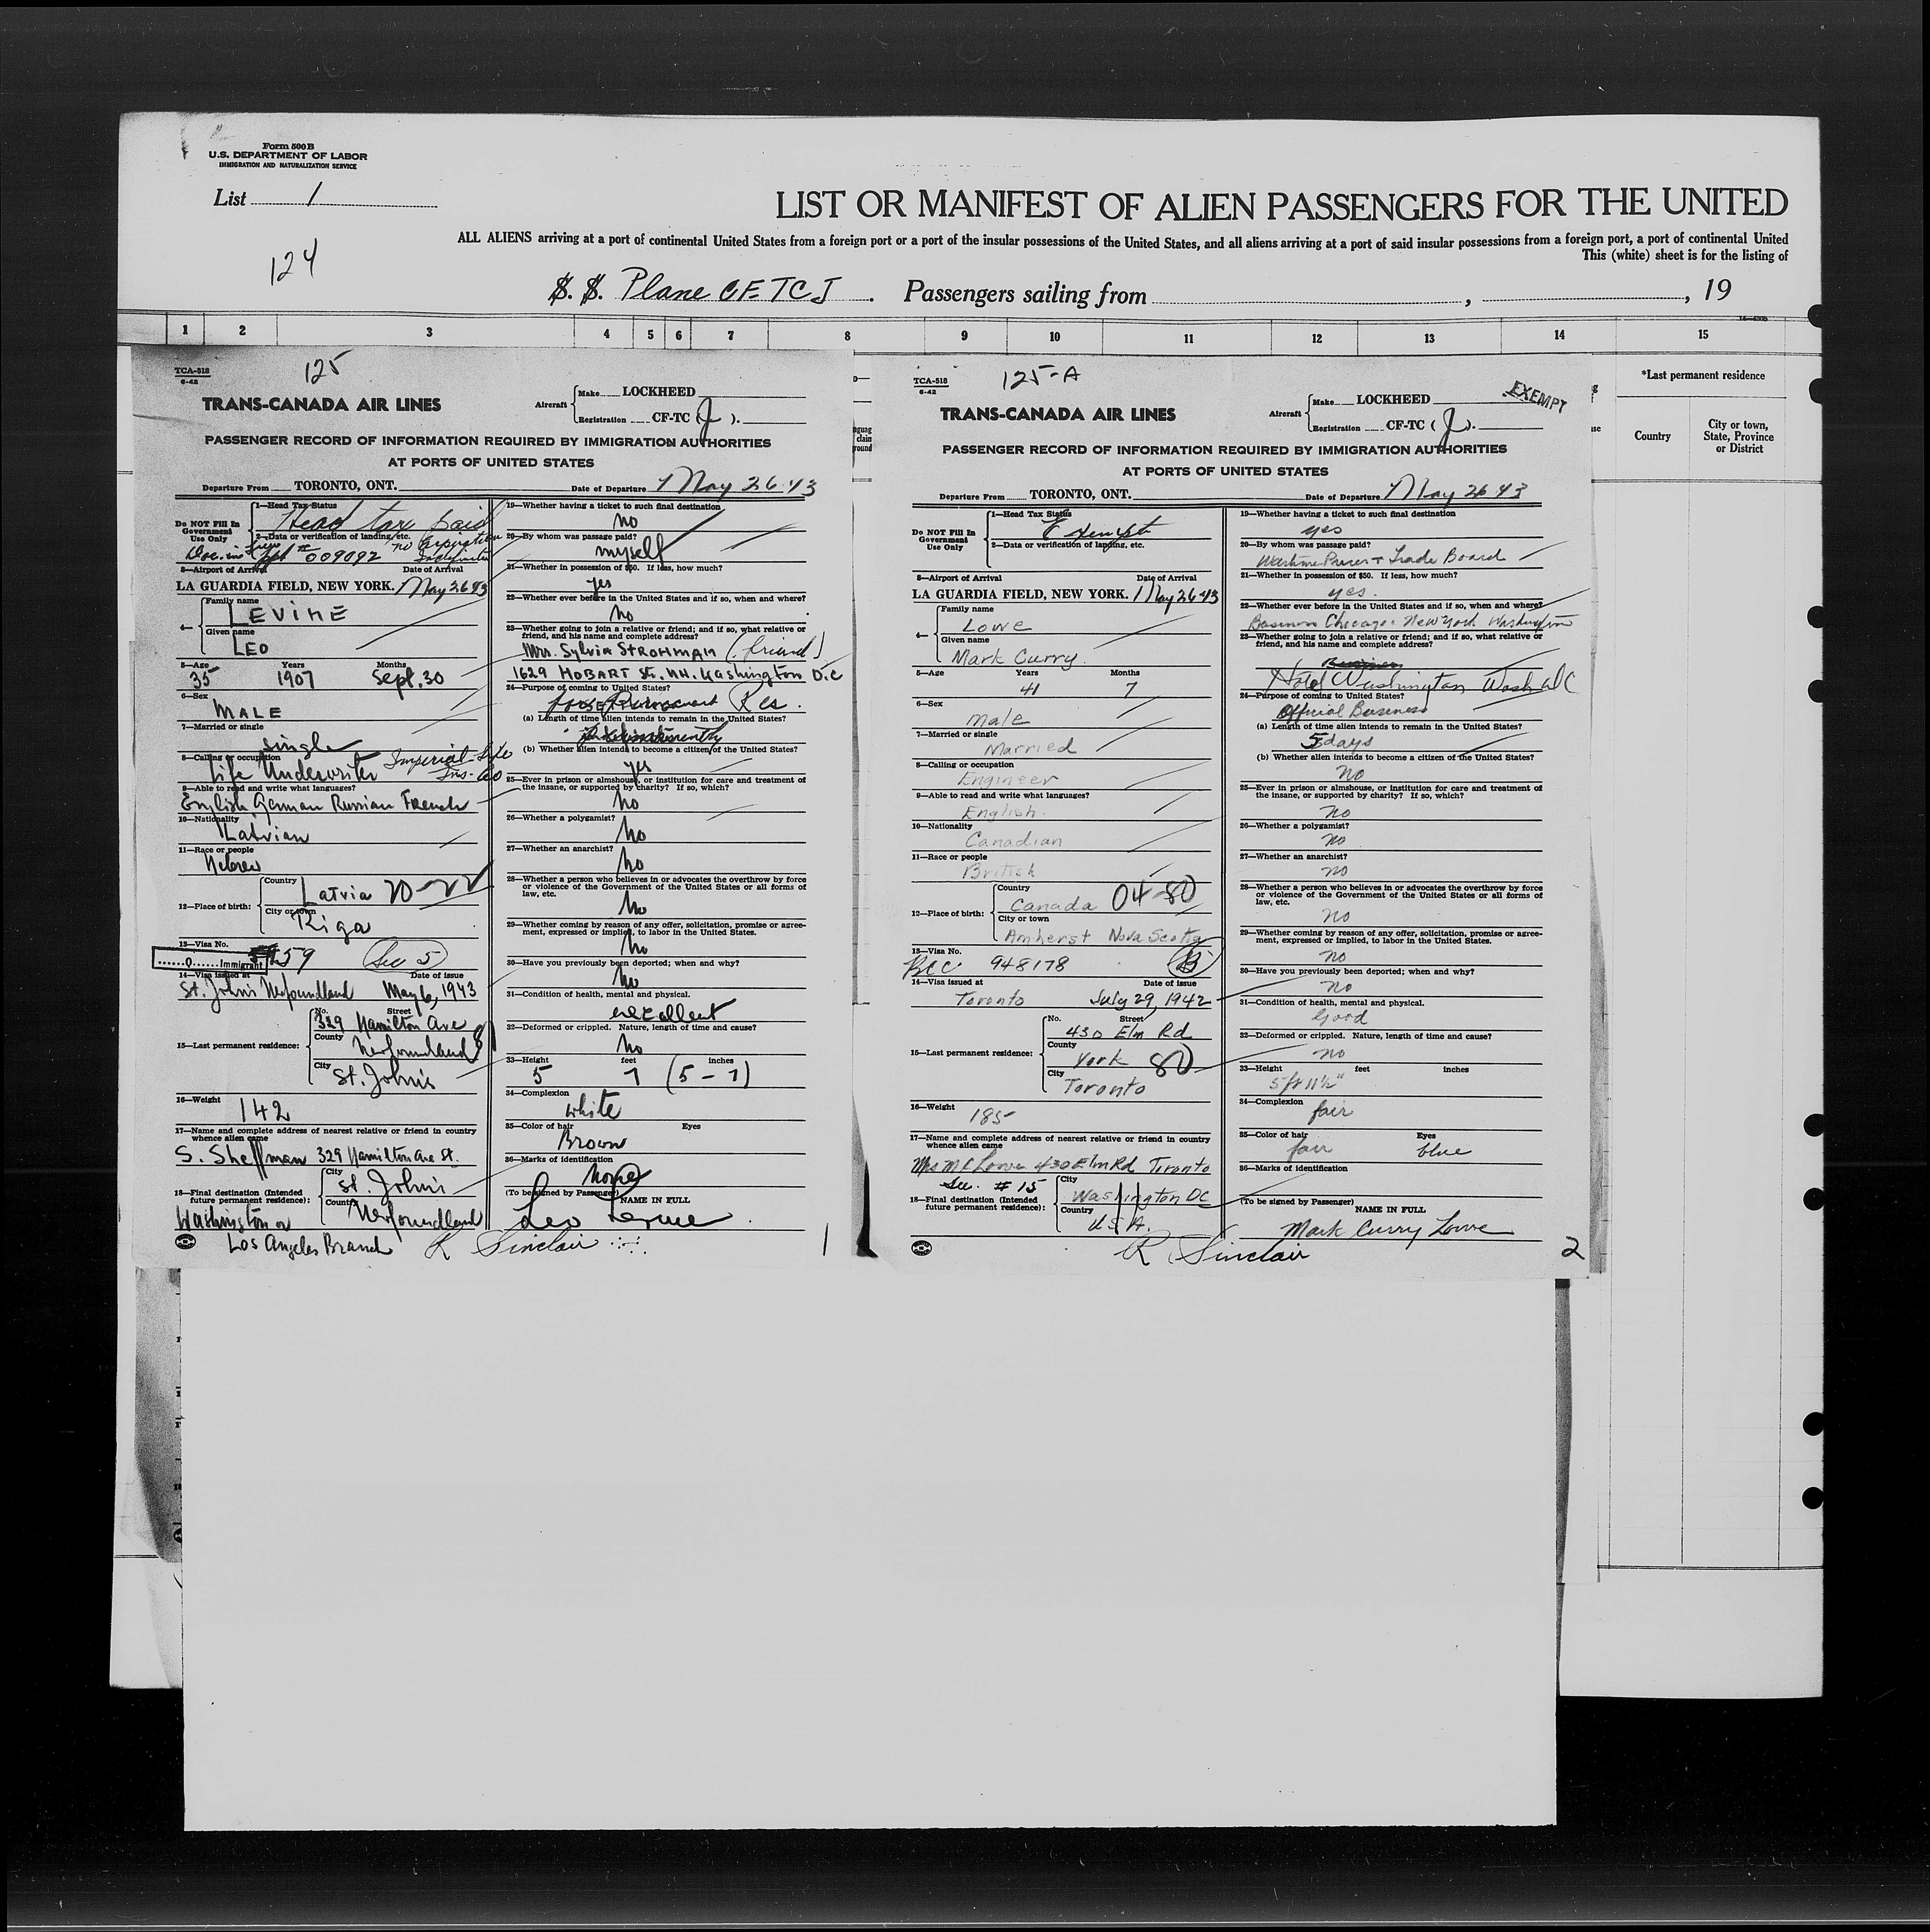 Form 500B
U.S. DEPARTMENT OF LABOR
IMMIGRATION AND NATURALIZATION SERVICE
List 1
LIST OR MANIFEST OF ALIEN PASSENGERS FOR THE UNITED
ALL ALIENS arriving at a port of continental United States from a foreign port or a port of the insular possessions of the United States, and all aliens arriving at a port of said insular possessions from a foreign port, a port of continental United
This (white) sheet is for the listing of
124
S. S. Plane CF-TCJ. Passengers sailing from , , 19
1 2 3 4 5 6 7 8 9 10 11 12 13 14 15
*Last permanent residence
Country
City or town,
State, Province
or District
TCA-518
6-42
125
TRANS-CANADA AIR LINES
Aircraft
Make LOCKHEED
Registration CF-TC (J).
PASSENGER RECORD OF INFORMATION REQUIRED BY IMMIGRATION AUTHORITIES
AT PORTS OF UNITED STATES
Departure From TORONTO, ONT. Date of Departure May 26 43
Do NOT Fill In
Government
Use Only
1—Head Tax Status
Head tax paid
2—Data or verification of landing, etc.
009092 no expiration
3—Airport of Arrival Date of Arrival
LA GUARDIA FIELD, NEW YORK. May 26 43
4—
Family name
LEVINE
Given name
LEO
5—Age Years Months
35 1907 Sept. 30
6—Sex
MALE
7—Married or single
single
8—Calling or occupation
Life Underwriter Imperial Life Ins. Co
9—Able to read and write what languages?
English German Russian French
10—Nationality
Latvian
11—Race or people
Hebrew
12—Place of birth:
Country
Latvia
City or town
Riga
13—Visa No.
Q Immigrant 59 Sec 5
14—Visa issued at Date of issue
St. John's Newfoundland May 6, 1943
15—Last permanent residence:
No. Street
329 Hamilton Ave
County
Newfoundland
City
St. John's
16—Weight
142
17—Name and complete address of nearest relative or friend in country
whence alien came
S. Sheffman 329 Hamilton Ave St.
18—Final destination (Intended
future permanent residence):
City
St. John's
Country
Newfoundland
Washington or
Los Angeles Branch
19—Whether having a ticket to such final destination
no
20—By whom was passage paid?
myself
21—Whether in possession of $50. If less, how much?
yes
22—Whether ever before in the United States and if so, when and where?
No
23—Whether going to join a relative or friend; and if so, what relative or
friend, and his name and complete address?
Mrs. Sylvia STROHMAN (friend)
1629 HOBART St. NW. Washington D.C
24—Purpose of coming to United States?
Permanent Res.
(a) Length of time alien intends to remain in the United States?
(b) Whether alien intends to become a citizen of the United States?
yes
25—Ever in prison or almshouse, or institution for care and treatment of
the insane, or supported by charity? If so, which?
No
26—Whether a polygamist?
No
27—Whether an anarchist?
No
28—Whether a person who believes in or advocates the overthrow by force
or violence of the Government of the United States or all forms of
law, etc.
No
29—Whether coming by reason of any offer, solicitation, promise or agree-
ment, expressed or implied, to labor in the United States.
No
30—Have you previously been deported; when and why?
No
31—Condition of health, mental and physical.
excellent
32—Deformed or crippled. Nature, length of time and cause?
No
33—Height feet inches
5 7 (5 - 7)
34—Complexion
white
35—Color of hair Eyes
Brown
36—Marks of identification
None
(To be signed by Passenger) NAME IN FULL
Leo Levine
R Sinclair
1
TCA-518
6-42
125-A
EXEMPT
TRANS-CANADA AIR LINES
Aircraft
Make LOCKHEED
Registration CF-TC (J).
PASSENGER RECORD OF INFORMATION REQUIRED BY IMMIGRATION AUTHORITIES
AT PORTS OF UNITED STATES
Departure From TORONTO, ONT. Date of Departure May 26 43
Do NOT Fill In
Government
Use Only
1—Head Tax Status
Exempt
2—Data or verification of landing, etc.
3—Airport of Arrival Date of Arrival
LA GUARDIA FIELD, NEW YORK. May 26 43
4—
Family name
Lowe
Given name
Mark Curry
5—Age Years Months
41 7
6—Sex
Male
7—Married or single
Married
8—Calling or occupation
Engineer
9—Able to read and write what languages?
English
10—Nationality
Canadian
11—Race or people
British
12—Place of birth:
Country
Canada 04-80
City or town
Amherst Nova Scotia
13—Visa No.
BCC 948178 B
14—Visa issued at Date of issue
Toronto July 29, 1942
15—Last permanent residence:
No. Street
430 Elm Rd
County
York 80
City
Toronto
16—Weight
185
17—Name and complete address of nearest relative or friend in country
whence alien came
Mrs M C Lowe 430 Elm Rd Toronto
See. # 15
18—Final destination (Intended
future permanent residence):
City
Washington DC
Country
U S A.
19—Whether having a ticket to such final destination
yes
20—By whom was passage paid?
Wartime Prices + Trade Board
21—Whether in possession of $50. If less, how much?
yes.
22—Whether ever before in the United States and if so, when and where?
Business Chicago New York Washington
23—Whether going to join a relative or friend; and if so, what relative or
friend, and his name and complete address?
Hotel Washington Wash DC
24—Purpose of coming to United States?
Official Business
(a) Length of time alien intends to remain in the United States?
5 days
(b) Whether alien intends to become a citizen of the United States?
No
25—Ever in prison or almshouse, or institution for care and treatment of
the insane, or supported by charity? If so, which?
no
26—Whether a polygamist?
no
27—Whether an anarchist?
no
28—Whether a person who believes in or advocates the overthrow by force
or violence of the Government of the United States or all forms of
law, etc.
no
29—Whether coming by reason of any offer, solicitation, promise or agree-
ment, expressed or implied, to labor in the United States.
no
30—Have you previously been deported; when and why?
no
31—Condition of health, mental and physical.
Good
32—Deformed or crippled. Nature, length of time and cause?
no
33—Height feet inches
5 ft 11½"
34—Complexion
fair
35—Color of hair Eyes
fair blue
36—Marks of identification
(To be signed by Passenger) NAME IN FULL
Mark Curry Lowe
R Sinclair
2